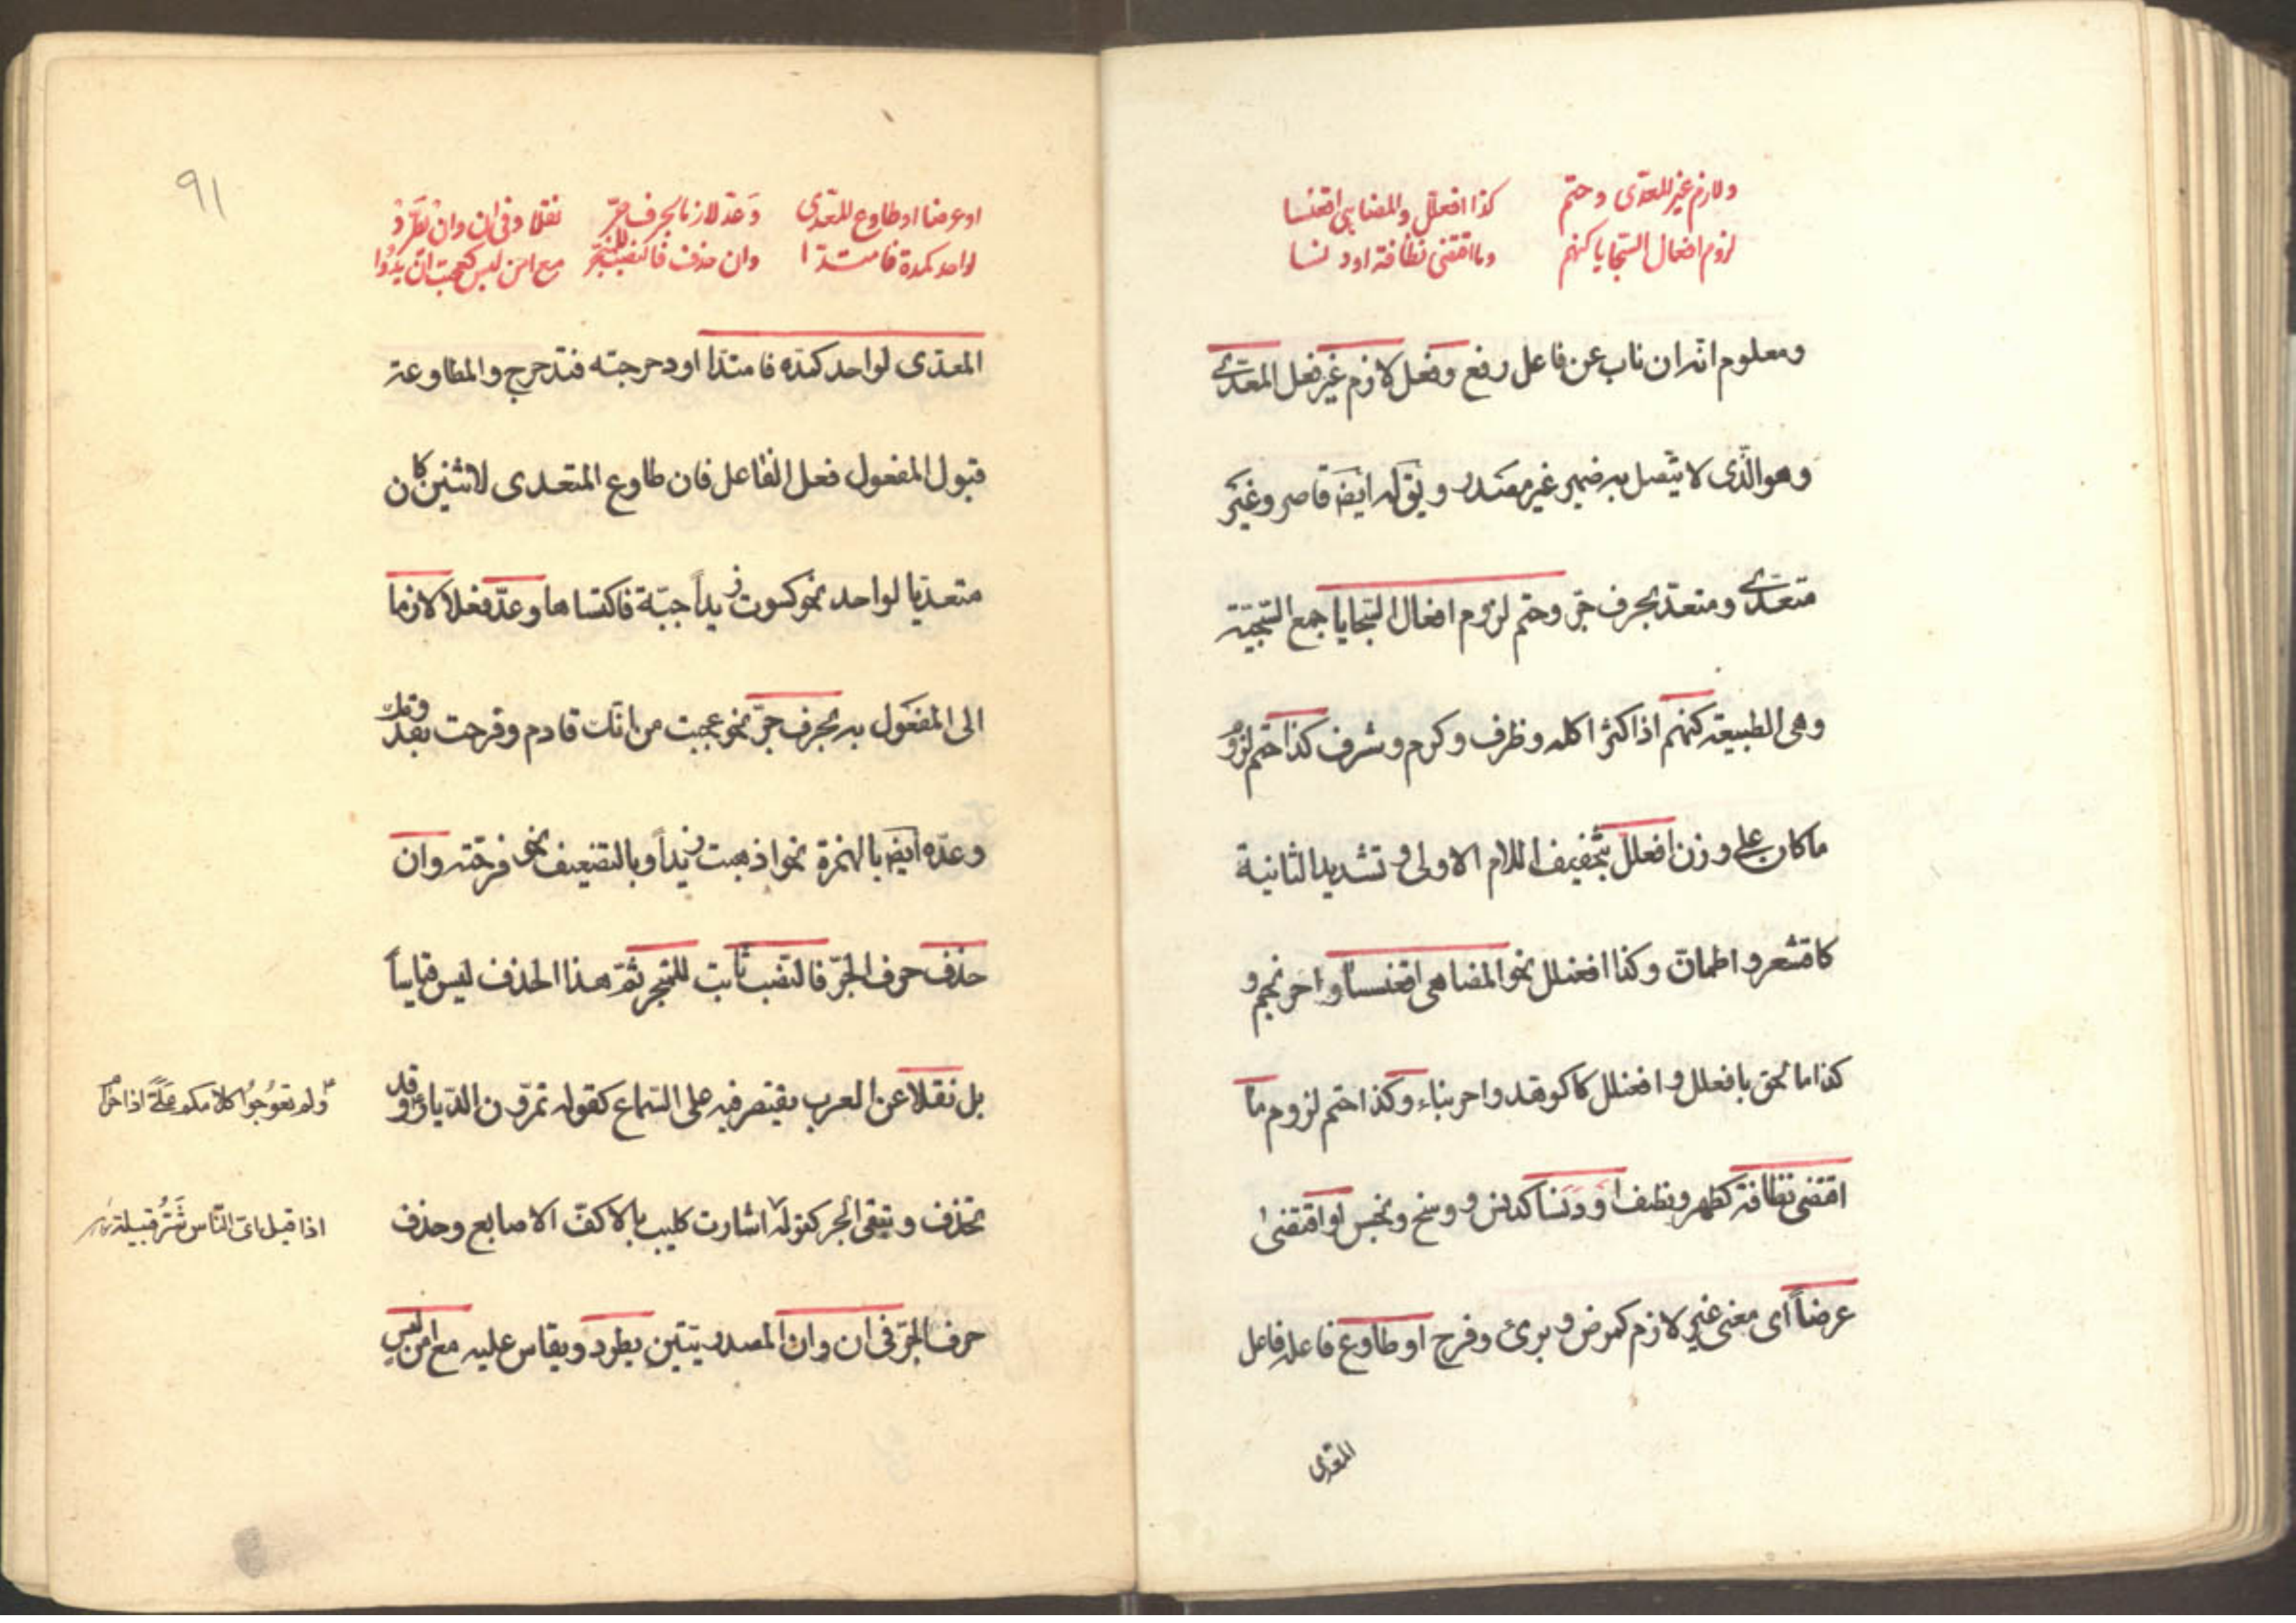 ولازم غير المعدّى وحتم كذا افعلّل والمضاهى اقعنسسا
لزوم افعال السّجايا كنهم وما اقتضى نظافة او دنسا
ومعلوم انه ان ناب عن فاعل رفع وفعل لازم غير فعل المعدّى
وهو الّذى لا يتّصل به ضمير غير مصدر ويق له ايضا قاصر وغير
متعدّى ومتعدّ بحرف جرّ وحتم لزوم افعال السّجايا جمع السّجيّة
وهى الطبيعة كنهم اذا كثر اكله وظرف وكرم وشرف كذا حتم لزوم
ما كان على وزن افعلل بتخفيف اللام الاولى وتشديد الثانية
كاقشعر واطمانّ وكذا افعنلل نحو المضاهى اقعنسسا واحرنجم و
كذا ما لحق بافعلل وافعنلل كاكوهد واحرنباء وكذا حتم لزوم ما
اقتضى نظافة كطهر ونظف او دنسا كدنس ووسخ ونجس او اقتضى
عرضاً اى معنى غير لازم كمرض وبرئ وفرح او طاوع فاعله فاعل
المعدّى
٩١
او عرضا او طاوع المعدّى وعدّ لازما بحرف جرّ نقلا وفى انّ وان يطّرد
لواحد كمدّه فامتدّا وان حذف فالنصب للمنجرّ مع امن لبس كعجبت ان يدوا
المعدّى لواحد كمدّه فامتدّا او دحرجته فتدحرج والمطاوعة
قبول المفعول فعل الفاعل فان طاوع المتعدى لاثنين كان
متعديا لواحد نحو كسوت زيداً جبّة فاكتساها وعدّ فعلا لازما
الى المفعول به بحرف جرّ نحو عجبت من انّك قادم وفرحت بقدومك
وعدّه ايضا بالهمزة نحو اذهبت زيداً وبالتضعيف نحو فرحته وان
حذف حرف الجرّ فالنصب ثابت للمنجر ثمّ هذا الحذف ليس قياساً
بل نقلا عن العرب يقتصر فيه على السّماع كقوله تمرّون الدّيار وقد
ولم تعوجوا كلامكم علىّ اذا حرام
تحذف ويبقى الجر كقوله اشارت كليب بالاكفّ الاصابع وحذف
اذا قيل اىّ النّاس شرّ قبيلة
حرف الجرّ فى انّ وان المصدريتين يطرد ويقاس عليه مع امن لبس